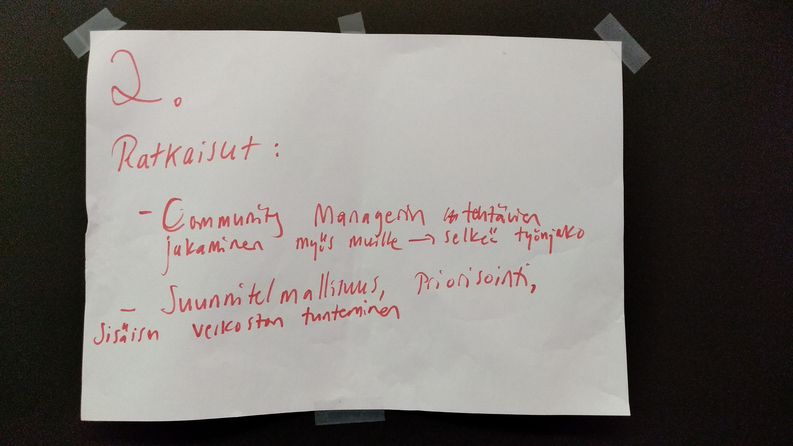 2.
Ratkaisut:
- Community Managerin tehtävien
jakaminen myös muille → selkeä työnjako
- Suunnitelmallisuus, Priorisointi,
Sisäisen verkoston tunteminen